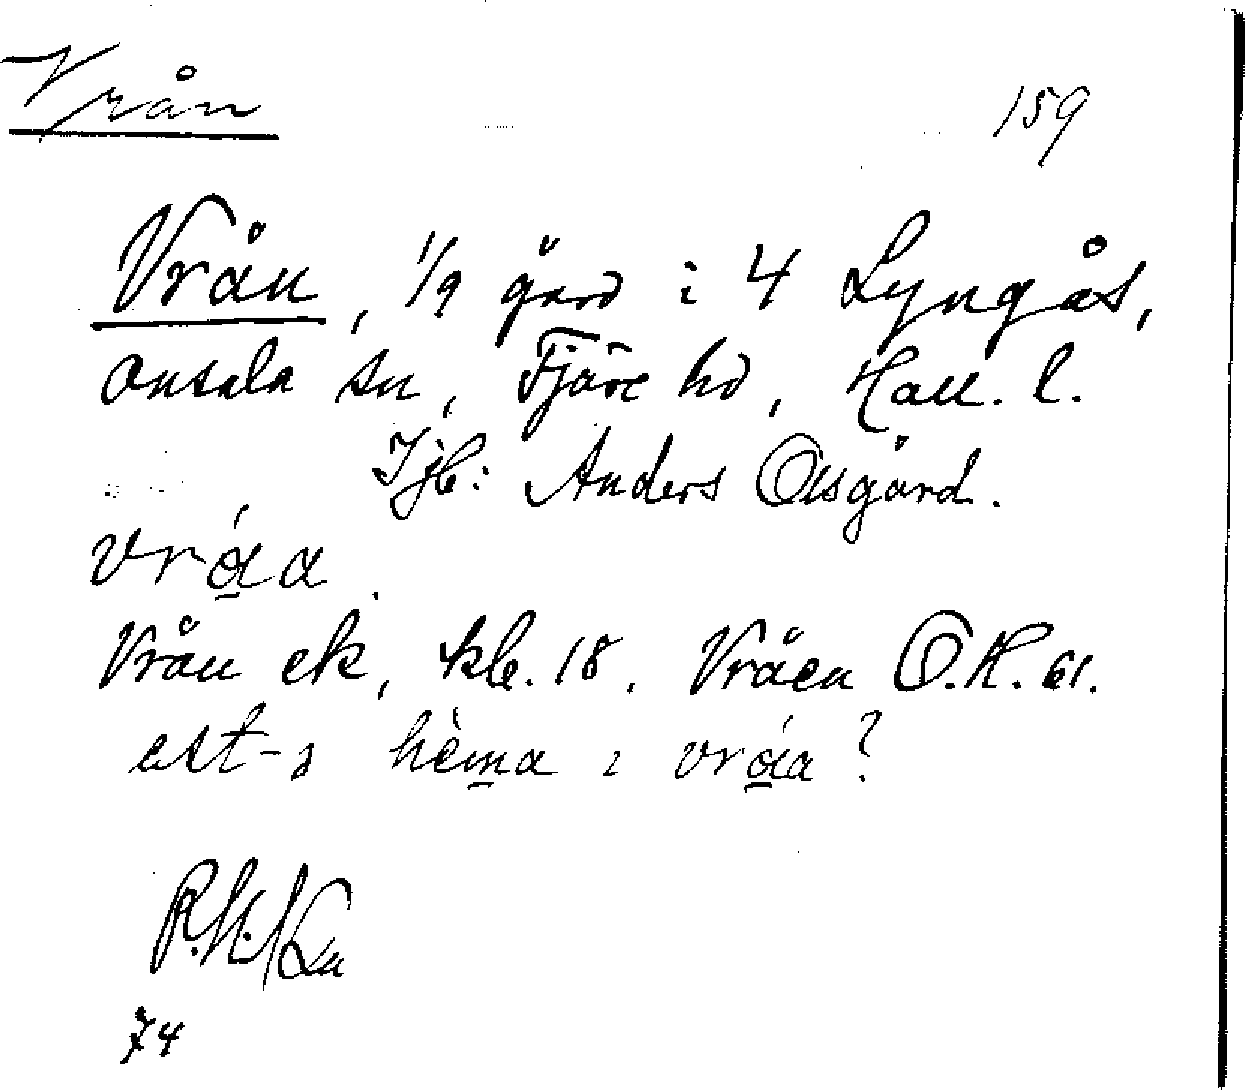 Vrån
159
Vrån, 1/9 gård i 4 Lyngås,
Onsala sn, Fjäre hd, Hall. l.
Ijb: Anders Olsgård.
vrá̱a.
Vrån ek, kb. 18. Vråen Ö.K. 61.
hèm̱a ı vrá̱a?
74